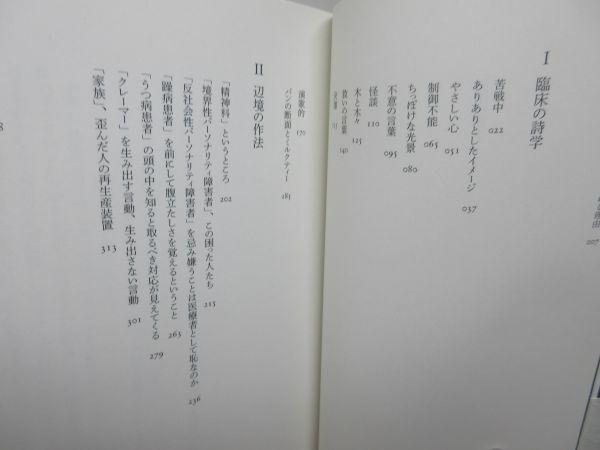 の理由 007
I 臨床の詩学
苦戦中 022
ありありとしたイメージ 037
やさしい心 051
制御不能 065
ちっぽけな光景 080
不意の言葉 095
怪談 110
木と木々 125
救いの言葉 140
155
演歌的 170
パンの断面とミルクティー 185
II 辺境の作法
「精神科」というところ 202
「境界性パーソナリティ障害者」、この困った人たち 215
「反社会性パーソナリティ障害者」を忌み嫌うことは医療者として恥なのか 236
「躁病患者」を前にして腹立たしさを覚えるということ 263
「うつ病患者」の頭の中を知ると取るべき対応が見えてくる 279
「クレーマー」を生み出す言動、生み出さない言動 301
「家族」、歪んだ人の再生産装置 313
8